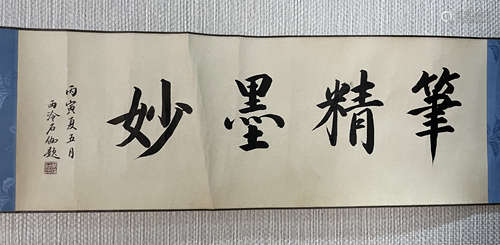 筆精墨妙
丙寅夏五月
西泠石伽題